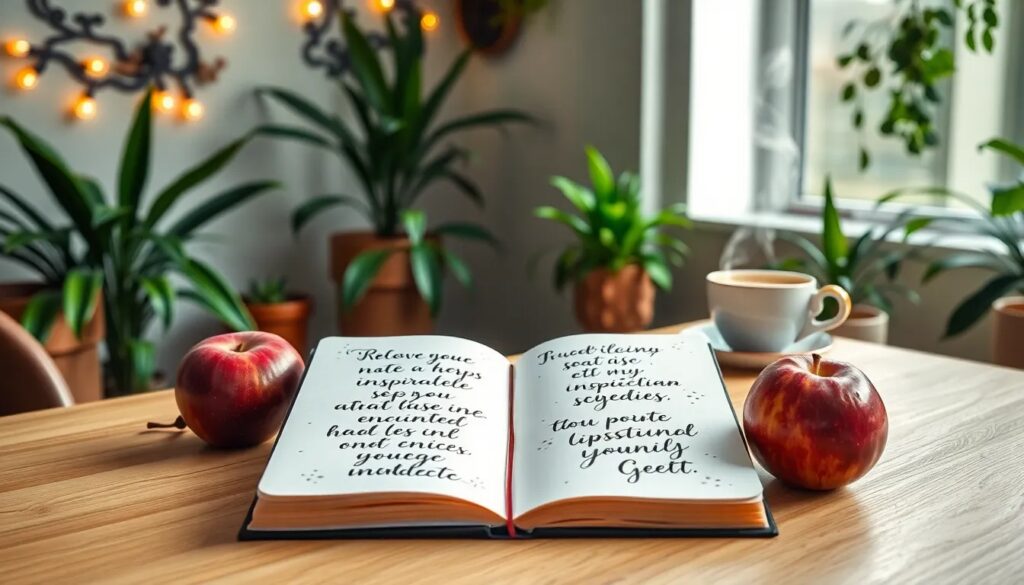 Relove youe
nate a herps
inspiralele
sep you
atral luse ine
encuinted
had les inl
ond cnices.
youcge
incldecte
seat aise
etl my
inspiićtian
scyedies.
tlou poute
lipsstunal
younily
Geett.